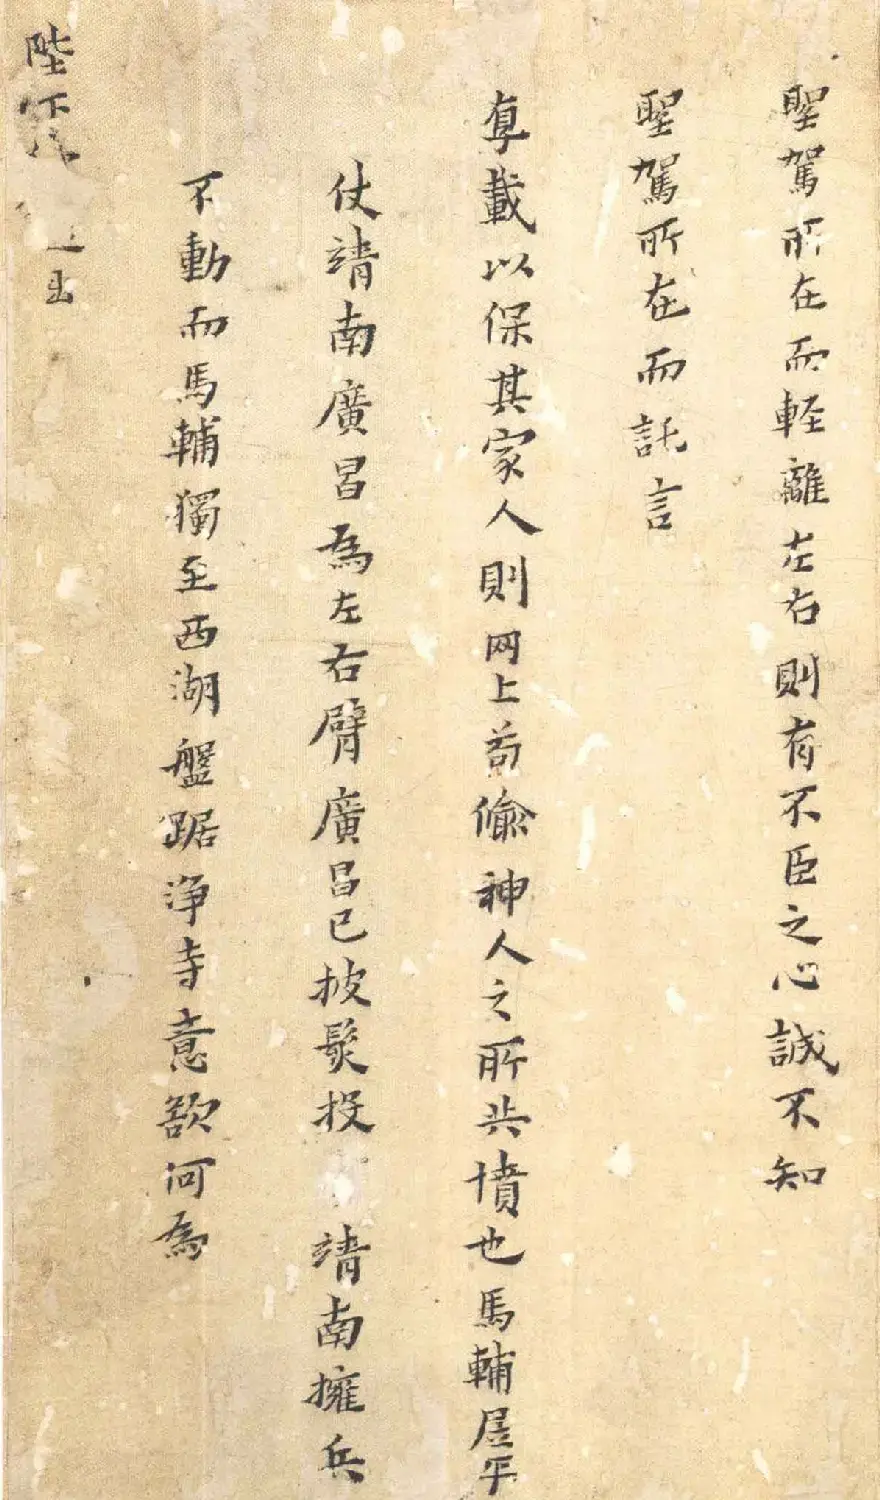 聖駕所在而輕離左右則有不臣之心誠不知
聖駕所在而託言
載以保其家人則网上苟偷神人之所共憤也馬輔居平
仗靖南廣昌為左右臂廣昌已披髮投靖南擁兵
不動而馬輔獨至西湖盤踞淨寺意欲何為
陛下
出